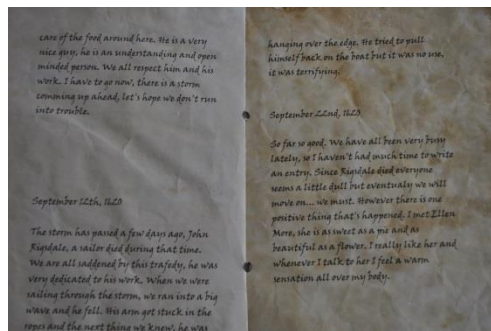 care of the food around here. He is a very
nice guy, he is an understanding and open
minded person. We all respect him and his
work. I have to go now, there is a storm
comming up ahead, let's hope we don't run
into trouble.
September 12th, 1620
The storm has passed a few days ago, John
Rigsdale, a sailor died during that time.
We are all saddened by this trafedy, he was
very dedicated to his work. When we were
sailing through the storm, we ran into a big
wave and he fell. His arm got stuck in the
ropes and the next thing we knew, he was
hanging over the edge. He tried to pull
himself back on the boat but it was no use,
it was terrifying.
September 22nd, 1620
So far so good. We have all been very busy
lately, so I haven't had much time to write
an entry. Since Rigsdale died everyone
seems a little dull but eventualy we will
move on... we must. However there is one
positive thing that's happened. I met Ellen
More, she is as sweet as a pie and as
beautiful as a flower. I really like her and
whenever I talk to her I feel a warm
sensation all over my body.